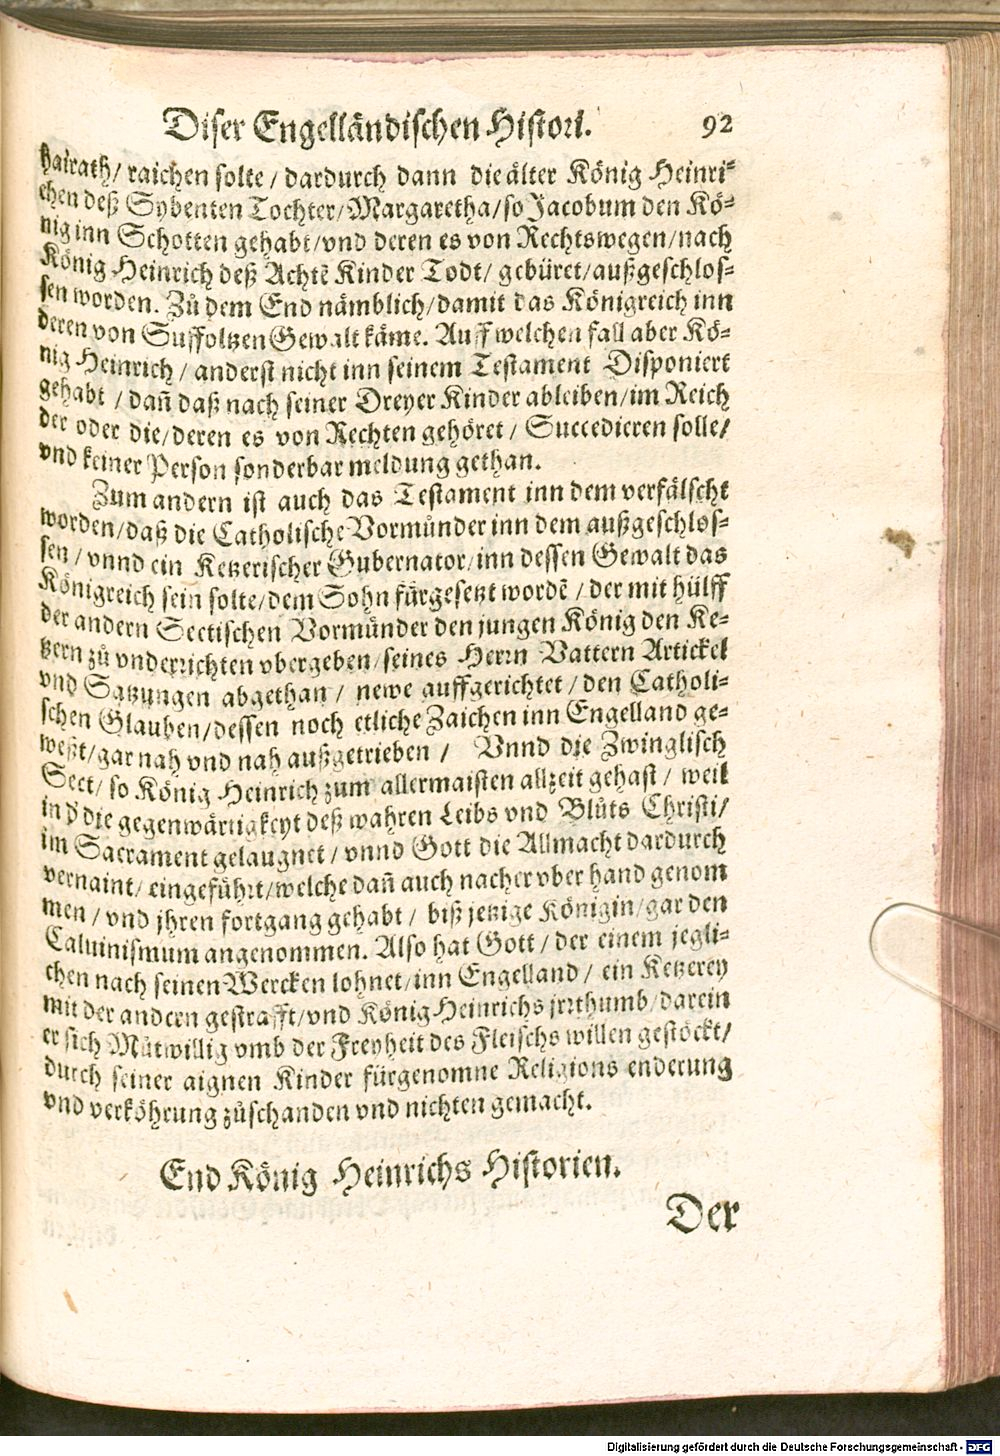 Diser Engelländischen Histori. 92
hairath/ raichen solte / dardurch dann die älter König Heinri⸗
chen deß Sybenten Tochter/Margaretha/so Jacobum den Kö⸗
nig inn Schotten gehabt/vnd deren es von Rechtswegen/nach
König Heinrich deß Achtē Kinder Todt/ gebüret/außgeschlos⸗
sen worden. Zů dem End nämblich/damit das Königreich inn
deren von Suffoltzen Gewalt käme. Auff welchen fall aber Kö⸗
nig Heinrich / anderst nicht inn seinem Testament Disponiert
gehabt / dañ daß nach seiner Dreyer Kinder ableiben/im Reich
der oder die/deren es von Rechten gehöret / Succedieren solle/
vnd keiner Person sonderbar meldung gethan.
Zum andern ist auch das Testament inn dem verfälscht
worden/daß die Catholische Vormünder inn dem außgeschlos⸗
sen / vnnd ein Ketzerischer Gubernator/inn dessen Gewalt das
Königreich sein solte/dem Sohn fürgesetzt wordē / der mit hülff
der andern Sectischen Vormünder den jungen König den Ke⸗
tzern zů vnderrichten vbergeben/seines Herrn Vattern Artickel
vnd Satzungen abgethan / newe auffgerichtet / den Catholi⸗
schen Glauben/dessen noch etliche Zaichen inn Engelland ge⸗
weßt/gar nah vnd nah außgetrieben / Vnnd die Zwinglisch
Sect/ so König Heinrich zum allermaisten allzeit gehast / weil
in d̕ die gegenwärtigkeyt deß wahren Leibs vnd Blůts Christi/
im Sacrament gelaugnet / vnnd Gott die Allmacht dardurch
vernaint/ eingeführt/welche dañ auch nacher vber hand genom
men / vnd jhren fortgang gehabt / biß jetzige Königin/gar den
Caluinismum angenommen. Also hat Gott / der einem jegli⸗
chen nach seinen Wercken lohnet/inn Engelland / ein Ketzerey
mit der andern gestrafft/vnd König Heinrichs jrrthumb/darein
er sich Můtwillig vmb der Freyheit des Fleischs willen gestöckt/
durch seiner aignen Kinder fürgenomne Religions enderung
vnd verköhrung zůschanden vnd nichten gemacht.
End König Heinrichs Historien.
Der
Digitalisierung gefördert durch die Deutsche Forschungsgemeinschaft - DFG